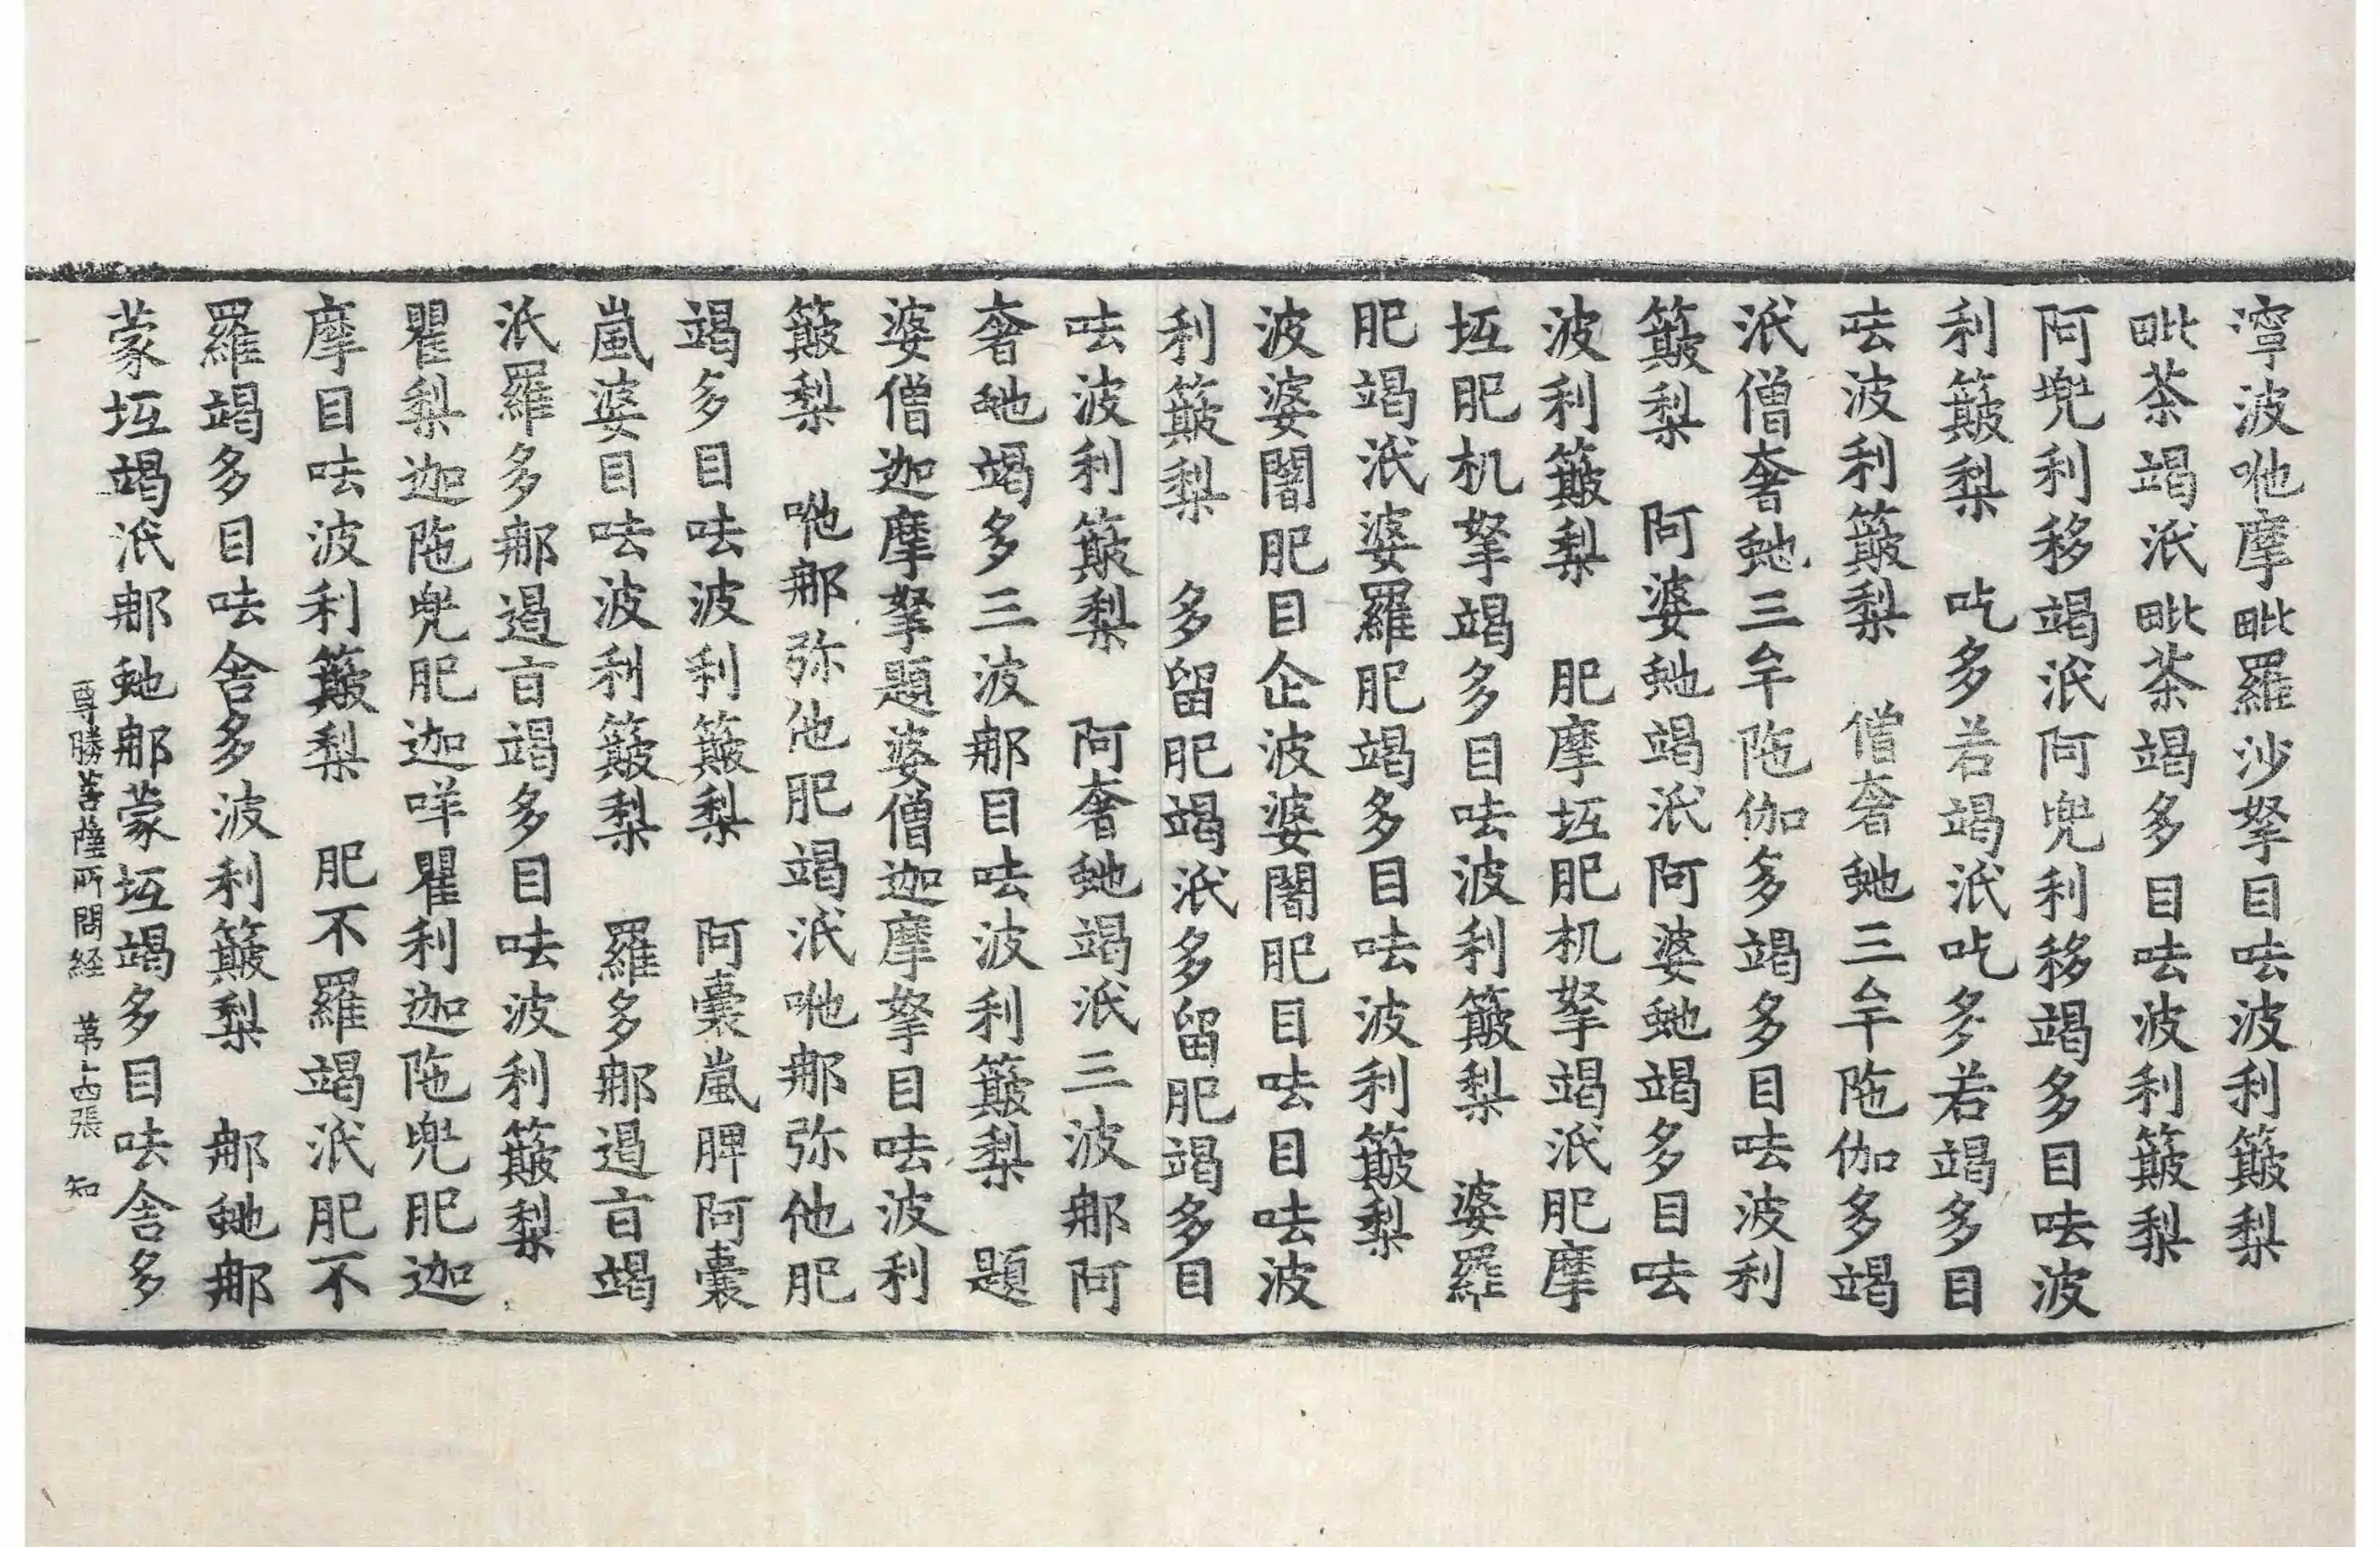 濘波吔摩毗羅沙拏目呿波利簸梨
毗荼竭泜毗荼竭多目呿波利簸梨
阿兜利移竭泜阿兜利移竭多目呿波
利簸梨　吃多若竭泜吃多若竭多目
呿波利簸梨　僧奢虵三牟陁伽多竭
泜僧奢虵三牟陁伽多竭多目呿波利
簸梨　阿婆虵竭泜阿婆虵竭多目呿
波利簸梨　肥摩坘肥机拏竭泜肥摩
坘肥机拏竭多目呿波利簸梨　婆羅
肥竭泜婆羅肥竭多目呿波利簸梨
波婆闍肥目企波婆闍肥目呿目呿波
利簸梨　多留肥竭泜多留肥竭多目
呿波利簸梨　阿奢虵竭泜三波那阿
奢虵竭多三波那目呿波利簸梨　題
婆僧迦摩拏題婆僧迦摩拏目呿波利
簸梨　吔那弥他肥竭泜吔那弥他肥
竭多目呿波利簸梨　阿囊嵐脾阿囊
嵐婆目呿波利簸梨　羅多那遏盲竭
泜羅多那遏盲竭多目呿波利簸梨
瞿梨迦陁兜肥迦咩瞿利迦陁兜肥迦
摩目呿波利簸梨　肥不羅竭泜肥不
羅竭多目呿舍多波利簸梨　那虵那
蒙坘竭泜那虵那蒙坘竭多目呿舍多
尊勝菩薩所問経　苐十四張　知